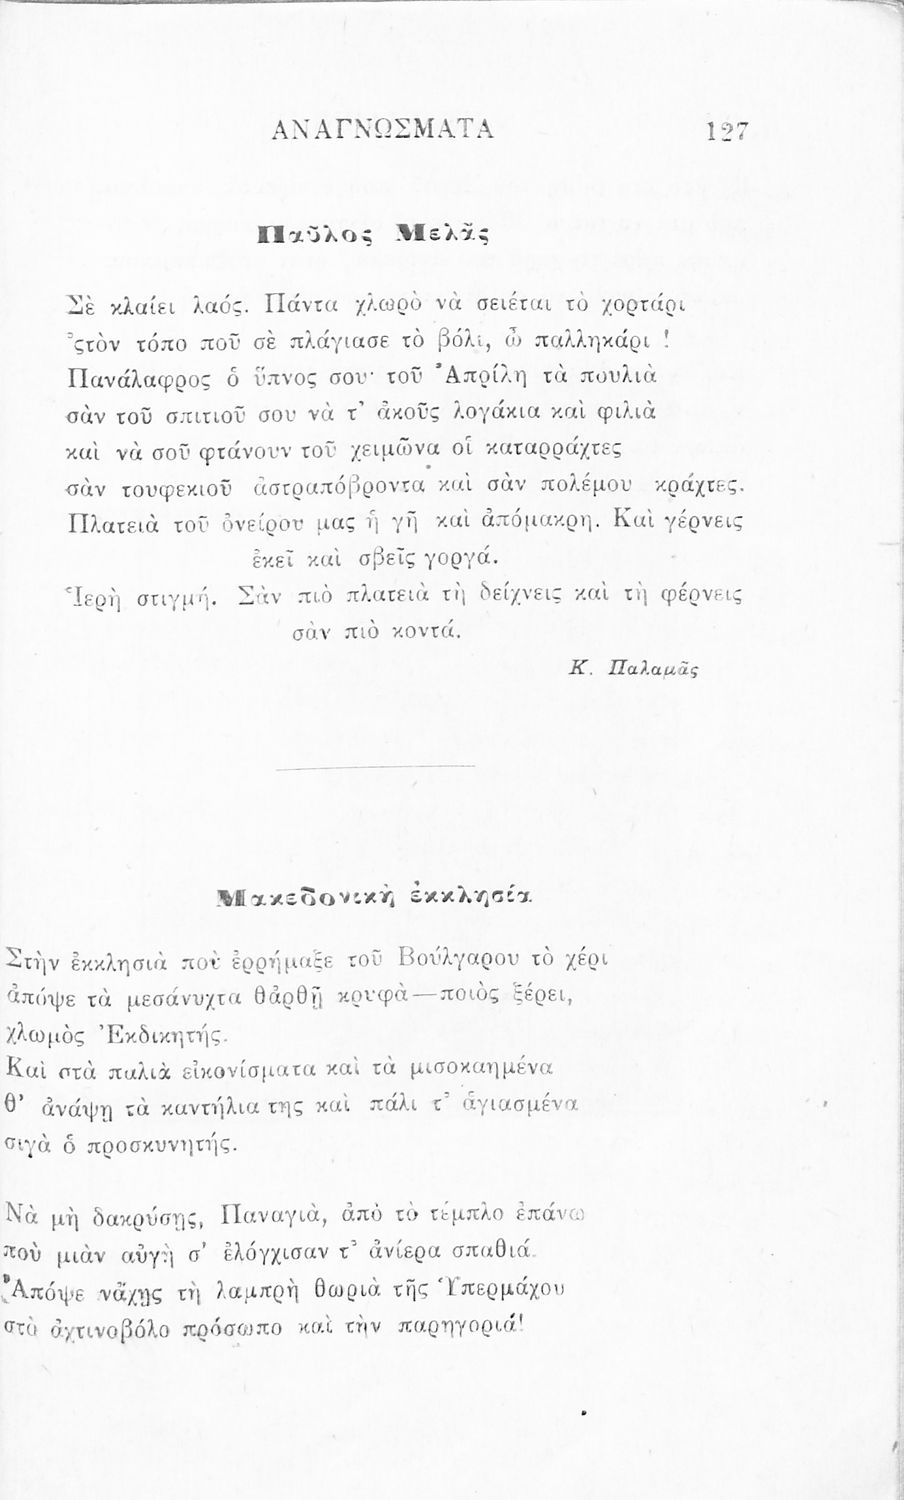 ΑΝΑΓΝΩΣΜΑΤΑ 127
Παῦλος Μελᾶς
Σὲ κλαίει λαός. Πάντα χλωρὸ νὰ σειέται τὸ χορτάρι
᾿ςτὸν τόπο ποῦ σὲ πλάγιασε τὸ βόλι, ὦ παλληκάρι !
Πανάλαφρος ὁ ὕπνος σου· τοῦ ᾿Απρίλη τὰ πουλιὰ
σὰν τοῦ σπιτιοῦ σου νὰ τ᾿ ἀκοῦς λογάκια καὶ φιλιὰ
καὶ νὰ σοῦ φτάνουν τοῦ χειμῶνα οἱ καταρράχτες
σὰν τουφεκιοῦ ἀστραπόβροντα καὶ σὰν πολέμου κράχτες.
Πλατειὰ τοῦ ὀνείρου μας ἡ γῆ καὶ ἀπόμακρη. Καὶ γέρνεις
ἐκεῖ καὶ σβεῖς γοργά.
Ἱερὴ στιγμή. Σὰν πιὸ πλατειὰ τὴ δείχνεις καὶ τὴ φέρνεις
σὰν πιὸ κοντά.
Κ. Παλαμᾶς
Μακεδονικὴ ἐκκλησία
Στὴν ἐκκλησιὰ ποὺ ἐρρήμαξε τοῦ Βούλγαρου τὸ χέρι
ἀπόψε τὰ μεσάνυχτα θἀρθῇ κρυφὰ—ποιὸς ξέρει,
χλωμὸς Ἐκδικητής.
Καὶ στὰ παλιὰ εἰκονίσματα καὶ τὰ μισοκαημένα
θ᾿ ἀνάψῃ τὰ καντήλια της καὶ πάλι τ᾿ ἁγιασμένα
σιγὰ ὁ προσκυνητής.
Νὰ μὴ δακρύσῃς, Παναγιὰ, ἀπὸ τὸ τέμπλο ἐπάνω
ποὺ μιὰν αὐγὴ σ᾿ ἐλόγχισαν τ᾿ ἀνίερα σπαθιά.
᾿Απόψε νἄχῃς τὴ λαμπρὴ θωριὰ τῆς Ὑπερμάχου
στὸ ἀχτινοβόλο πρόσωπο καὶ τὴν παρηγοριά!